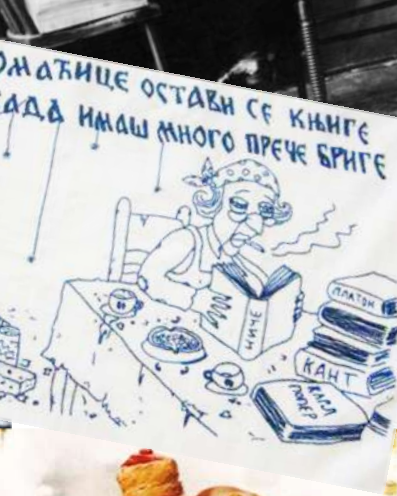 ОМАЋИЦЕ ОСТАВИ СЕ КЊИГЕ
САДА ИМАШ МНОГО ПРЕЧЕ БРИГЕ
ПЛАТОН
НИЧЕ
КАНТ
КАРЛ
ПОПЕР